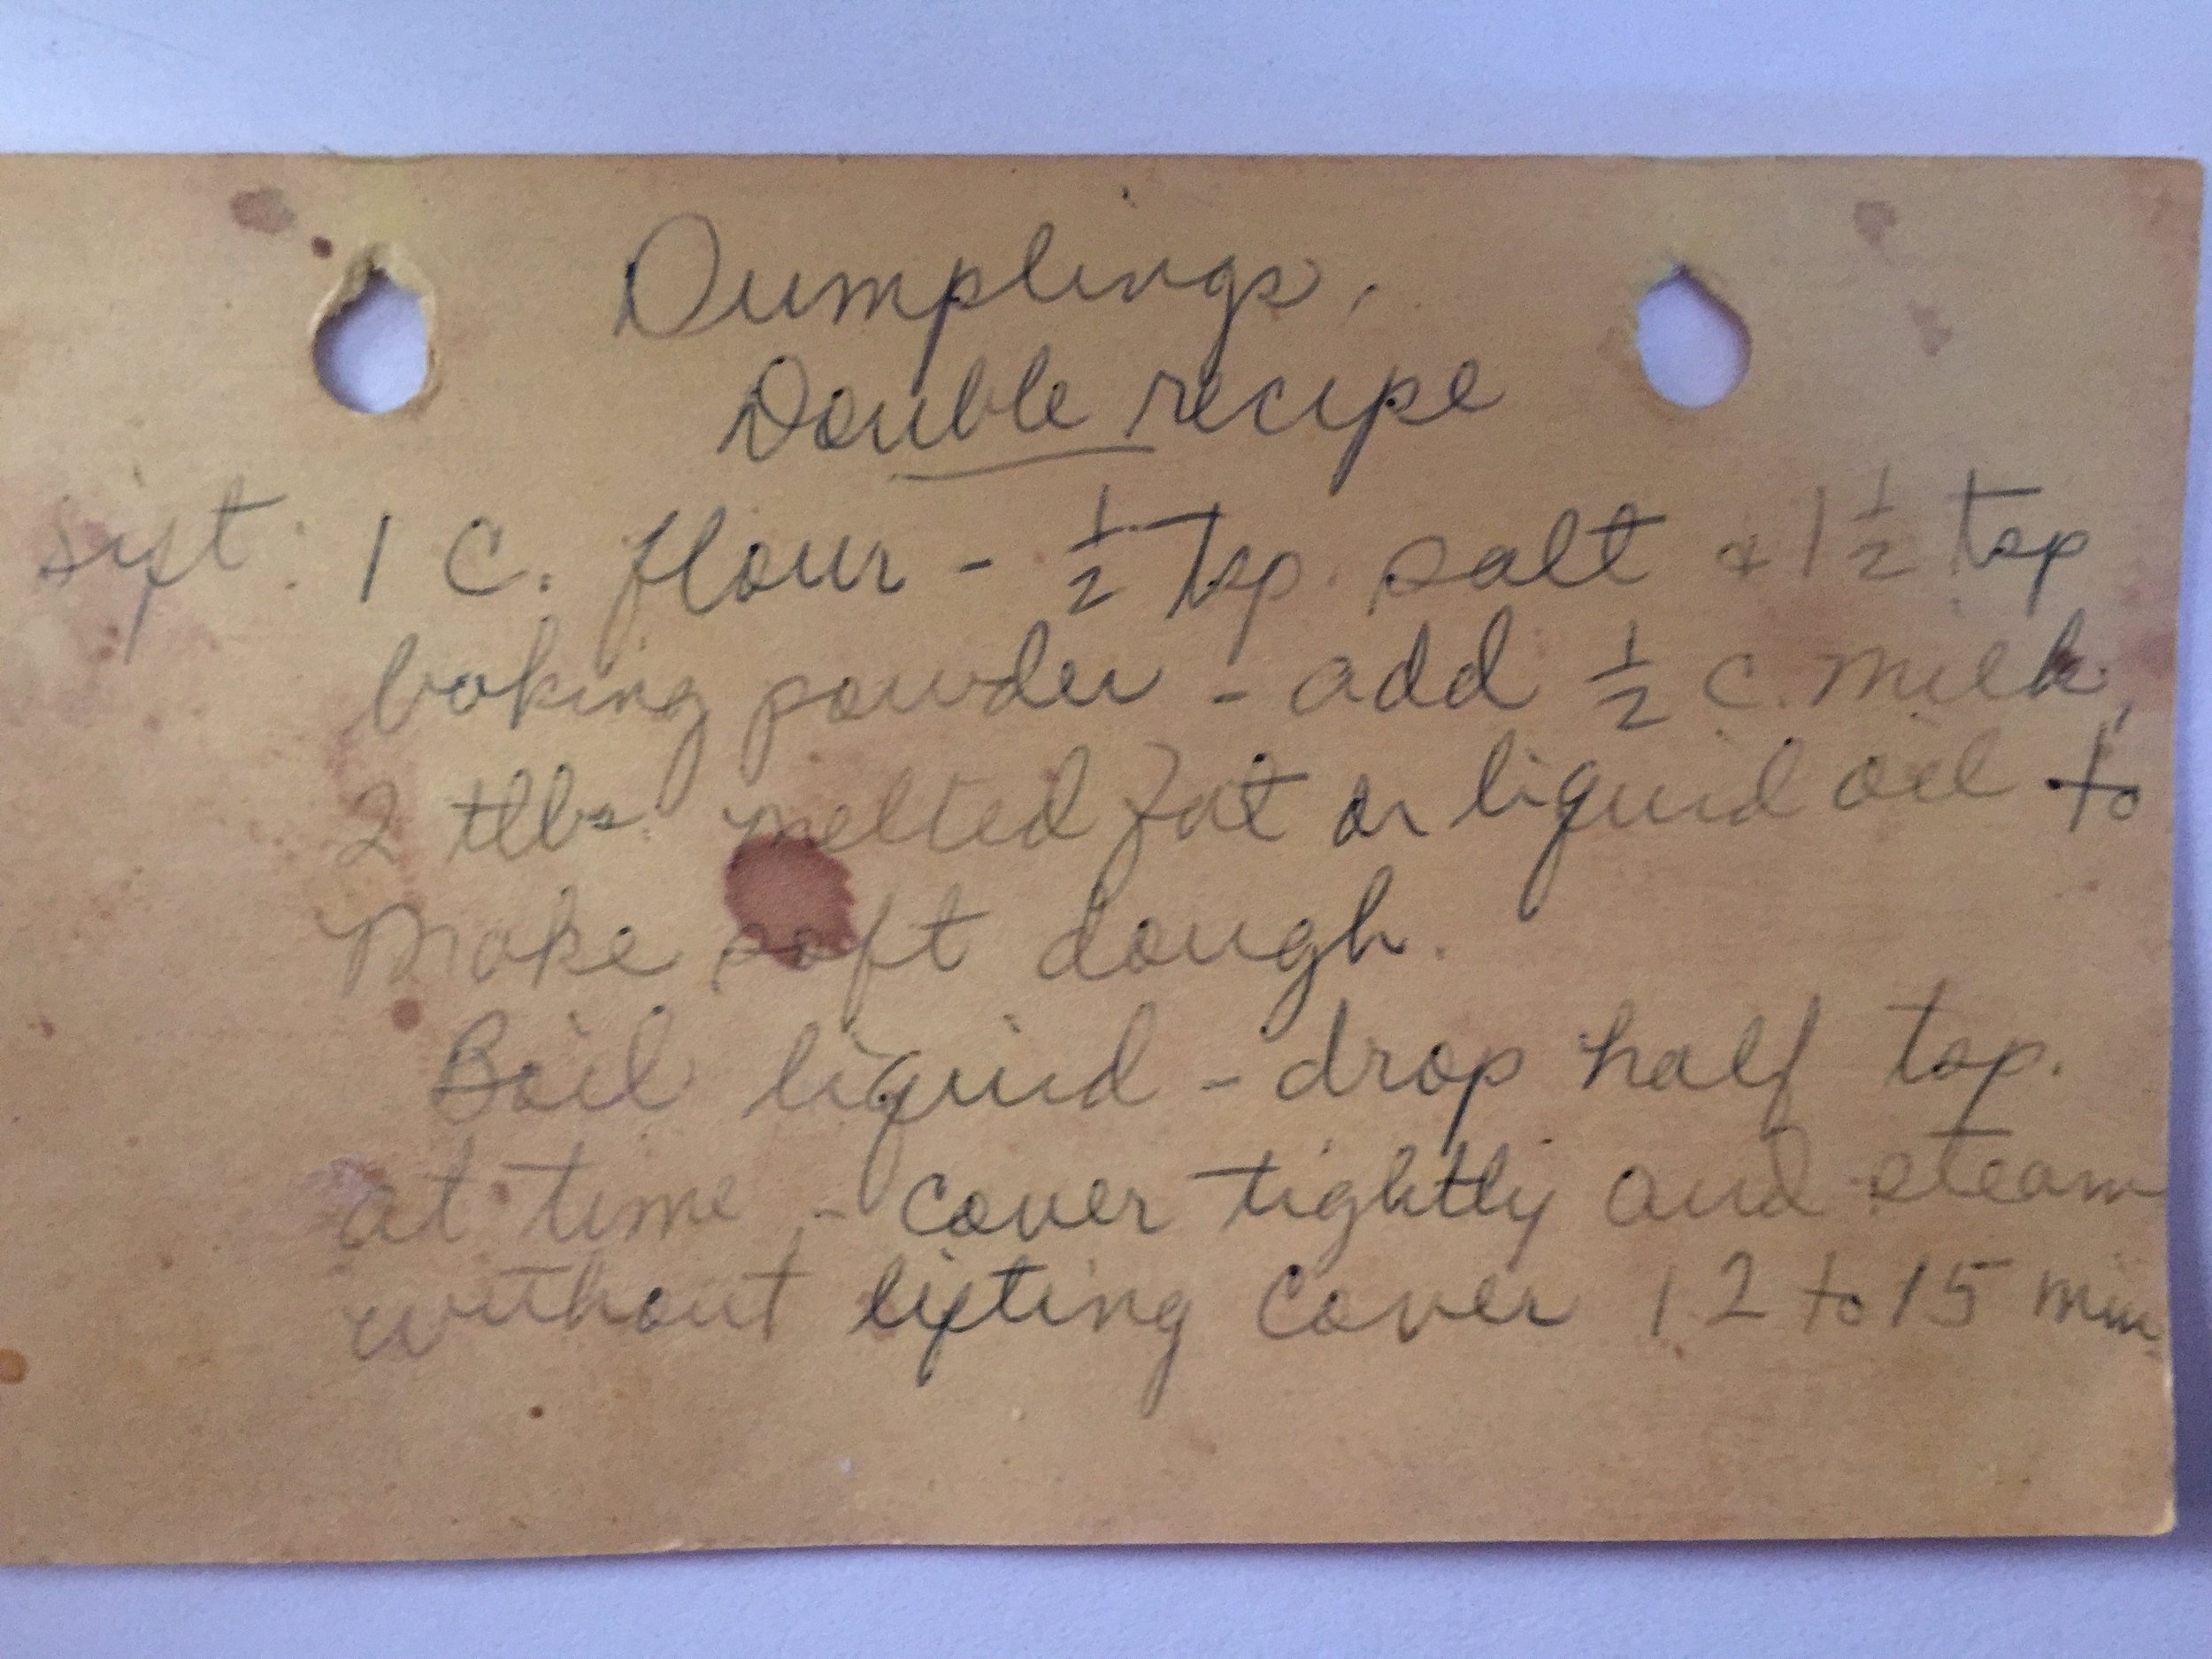 Dumplings,
Double recipe
Sift: 1 C. flour - 1/2 Tsp. salt & 1 1/2 tsp
baking powder - add 1/2 c. milk,
2 tlbs. melted fat or liquid oil to
make soft dough.
Boil liquid - drop half tsp.
at time - cover tightly and steam
without lifting cover 12 to 15 min.